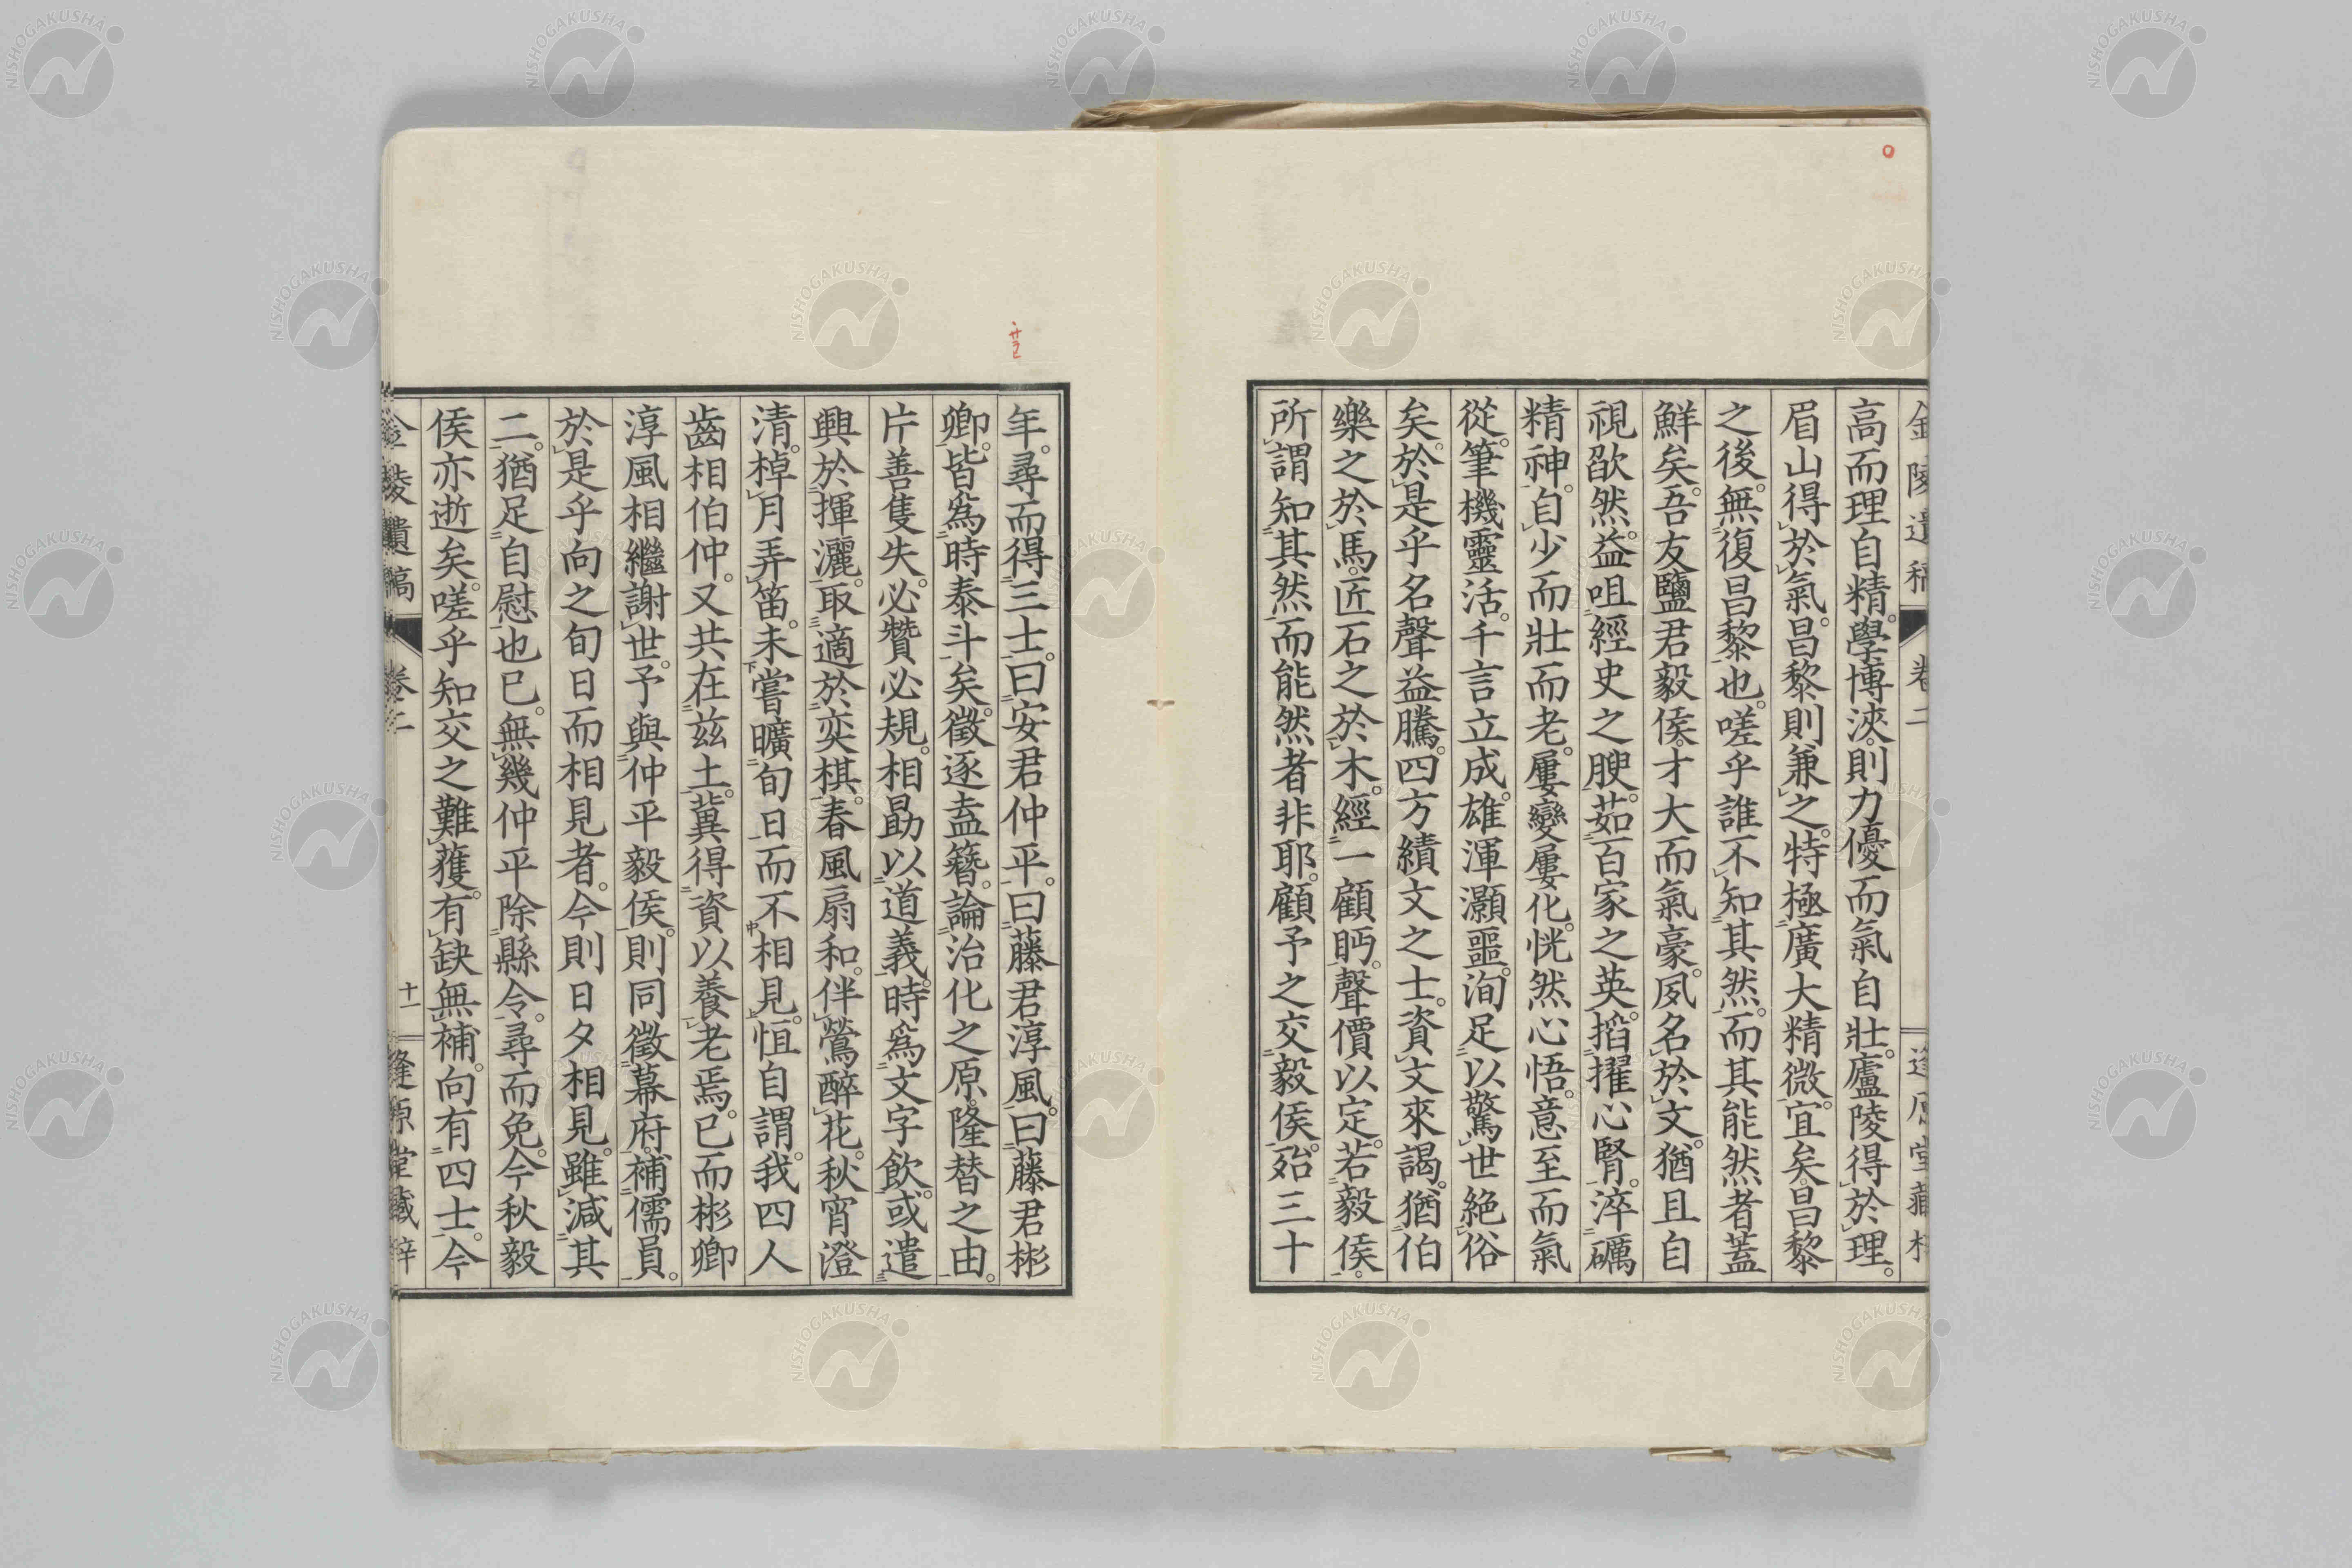 高而理自精。學博浹。則力優而氣自壯。廬陵得於理。
眉山得於氣。昌黎則兼之。特極廣大精微。宜矣。昌黎
之後。無復昌黎也。嗟乎誰不知其然。而其能然者蓋
鮮矣。吾友鹽君毅侯。才大而氣豪。夙名於文。猶且自
視欿然。益咀經史之腴。茹百家之英。搯擢心腎。淬礪
精神。自少而壯而老。屢變屢化。恍然心悟。意至而氣
從。筆機靈活。千言立成。雄渾灝噩。洵足以驚世絕俗
矣。於是乎名聲益騰。四方績文之士。資文來謁。猶伯
樂之於馬。匠石之於木。經一顧眄。聲價以定。若毅侯。
所謂知其然而能然者非耶。顧予之交毅侯。殆三十
年。尋而得三士。曰安君仲平。曰藤君淳風。曰藤君彬
卿。皆爲時泰斗矣。徵逐盍簪。論治化之原。隆替之由。
片善隻失。必贊必規。相勗以道義。時爲文字飲。或遣
興於揮灑。取適於奕棋。春風扇和。伴鶯醉花。秋宵澄
清。棹月弄笛。未嘗曠旬日而不相見。恒自謂。我四人
齒相伯仲。又共在兹土。冀得資以養老焉。已而彬卿
淳風相繼謝世。予與仲平毅侯。則同徵幕府。補儒員。
於是乎向之旬日而相見者。今則日夕相見。雖減其
二。猶足自慰也已。無幾仲平除縣令。尋而免。今秋毅
侯亦逝矣。嗟乎知交之難獲。有缺無補。向有四士。今
卷二
十一
NISHOGAKUSHA